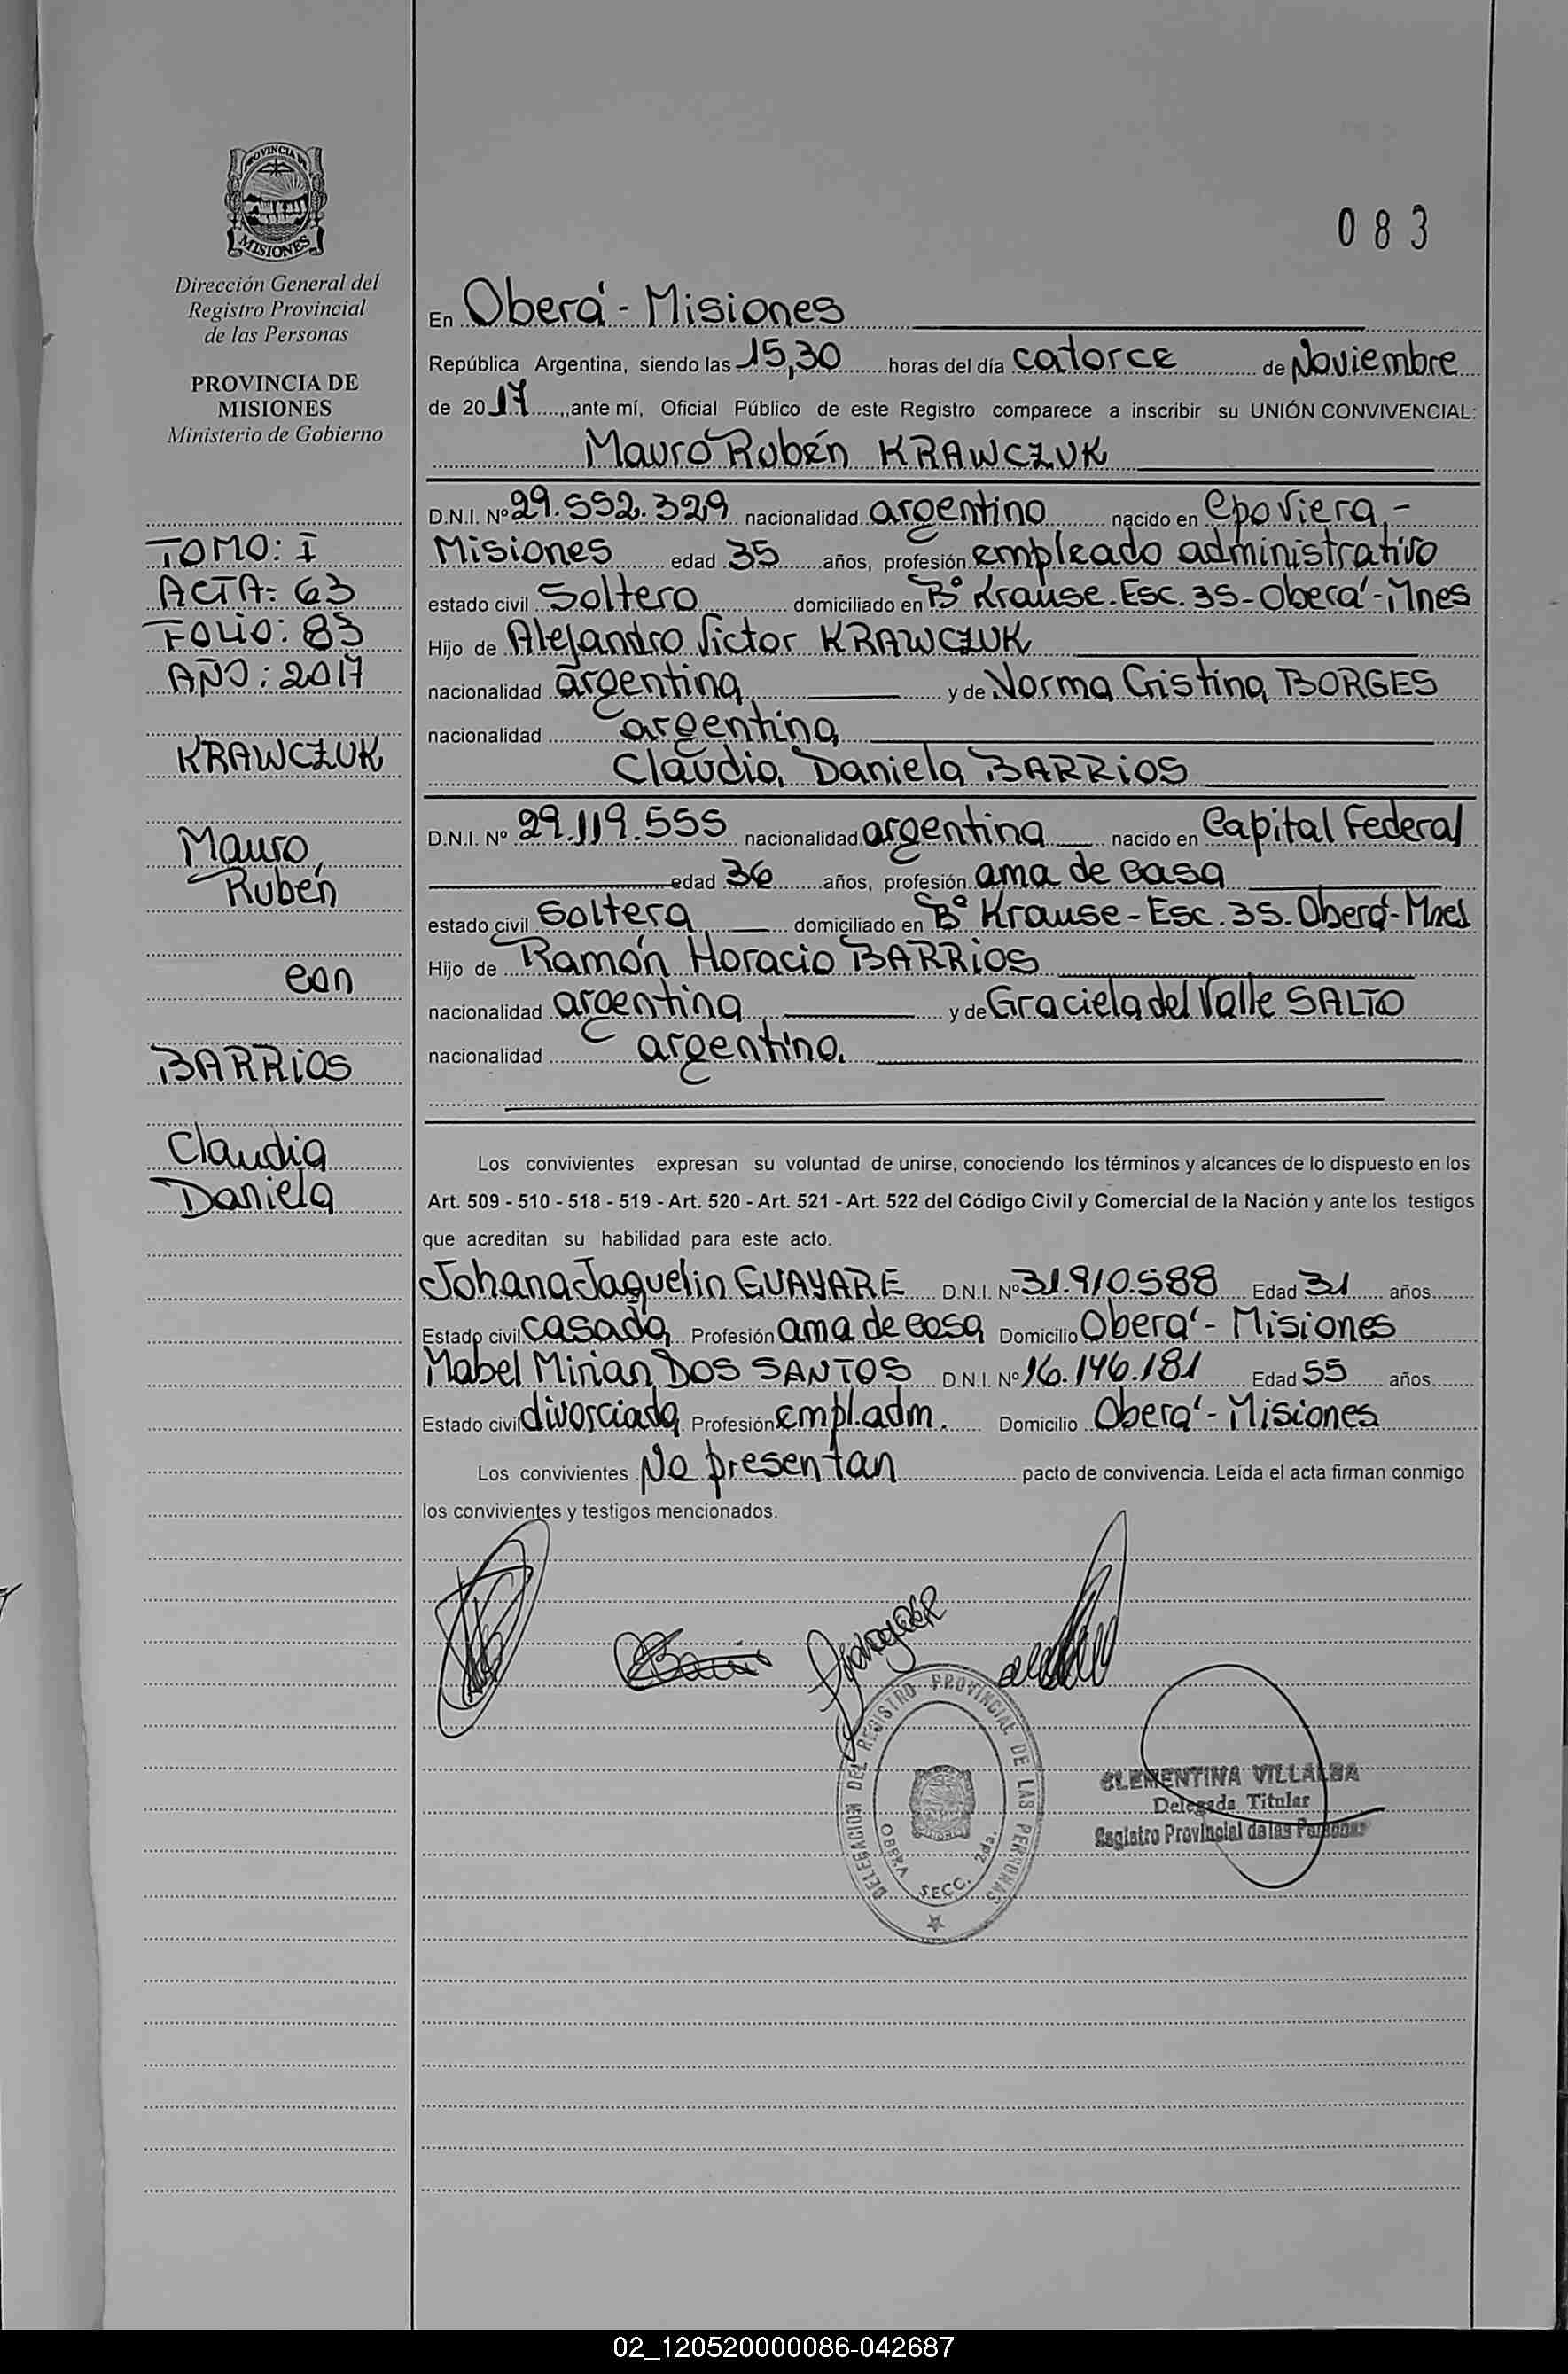 PROVINCIA DE
MISIONES
Dirección General del
Registro Provincial
de las Personas
PROVINCIA DE
MISIONES
Ministerio de Gobierno
TOMO: I
ACTA: 63
FOLIO: 83
AÑO: 2017
KRAWCZUK
Mauro,
Rubén
con
BARRIOS
Claudia
Daniela
083
En Oberá - Misiones
República Argentina, siendo las 15,30 horas del día catorce de Noviembre
de 2017, ante mí, Oficial Público de este Registro comparece a inscribir su UNIÓN CONVIVENCIAL:
Mauro Rubén KRAWCZUK
D.N.I. Nº 29.552.329 nacionalidad argentino nacido en Cpo Viera, -
Misiones edad 35 años, profesión empleado administrativo
estado civil Soltero domiciliado en Bº Krause-Esc. 35-Oberá-Mnes
Hijo de Alejandro Victor KRAWCZUK
nacionalidad argentina y de Norma Cristina BORGES
nacionalidad argentina
Claudia Daniela BARRIOS
D.N.I. Nº 29.119.555 nacionalidad argentina nacido en Capital Federal
edad 36 años, profesión ama de casa
estado civil Soltera domiciliado en Bº Krause-Esc. 35-Oberá-Mnes
Hijo de Ramón Horacio BARRIOS
nacionalidad argentina y de Graciela del Valle SALTO
nacionalidad argentina.
Los convivientes expresan su voluntad de unirse, conociendo los términos y alcances de lo dispuesto en los
Art. 509 - 510 - 518 - 519 - Art. 520 - Art. 521 - Art. 522 del Código Civil y Comercial de la Nación y ante los testigos
que acreditan su habilidad para este acto.
Johana Jaquelin GUAYARE D.N.I. Nº 31.910.588 Edad 31 años
Estado civil casada Profesión ama de casa Domicilio Oberá - Misiones
Mabel Mirian DOS SANTOS D.N.I. Nº 16.146.181 Edad 55 años
Estado civil divorciada Profesión empl.adm. Domicilio Oberá - Misiones
Los convivientes No presentan pacto de convivencia. Leída el acta firman conmigo
los convivientes y testigos mencionados.
DELEGACION DEL REGISTRO PROVINCIAL DE LAS PERSONAS
OBERA SECC. 2da.
CLEMENTINA VILLALBA
Delegada Titular
Registro Provincial de las Personas
02_120520000086-042687